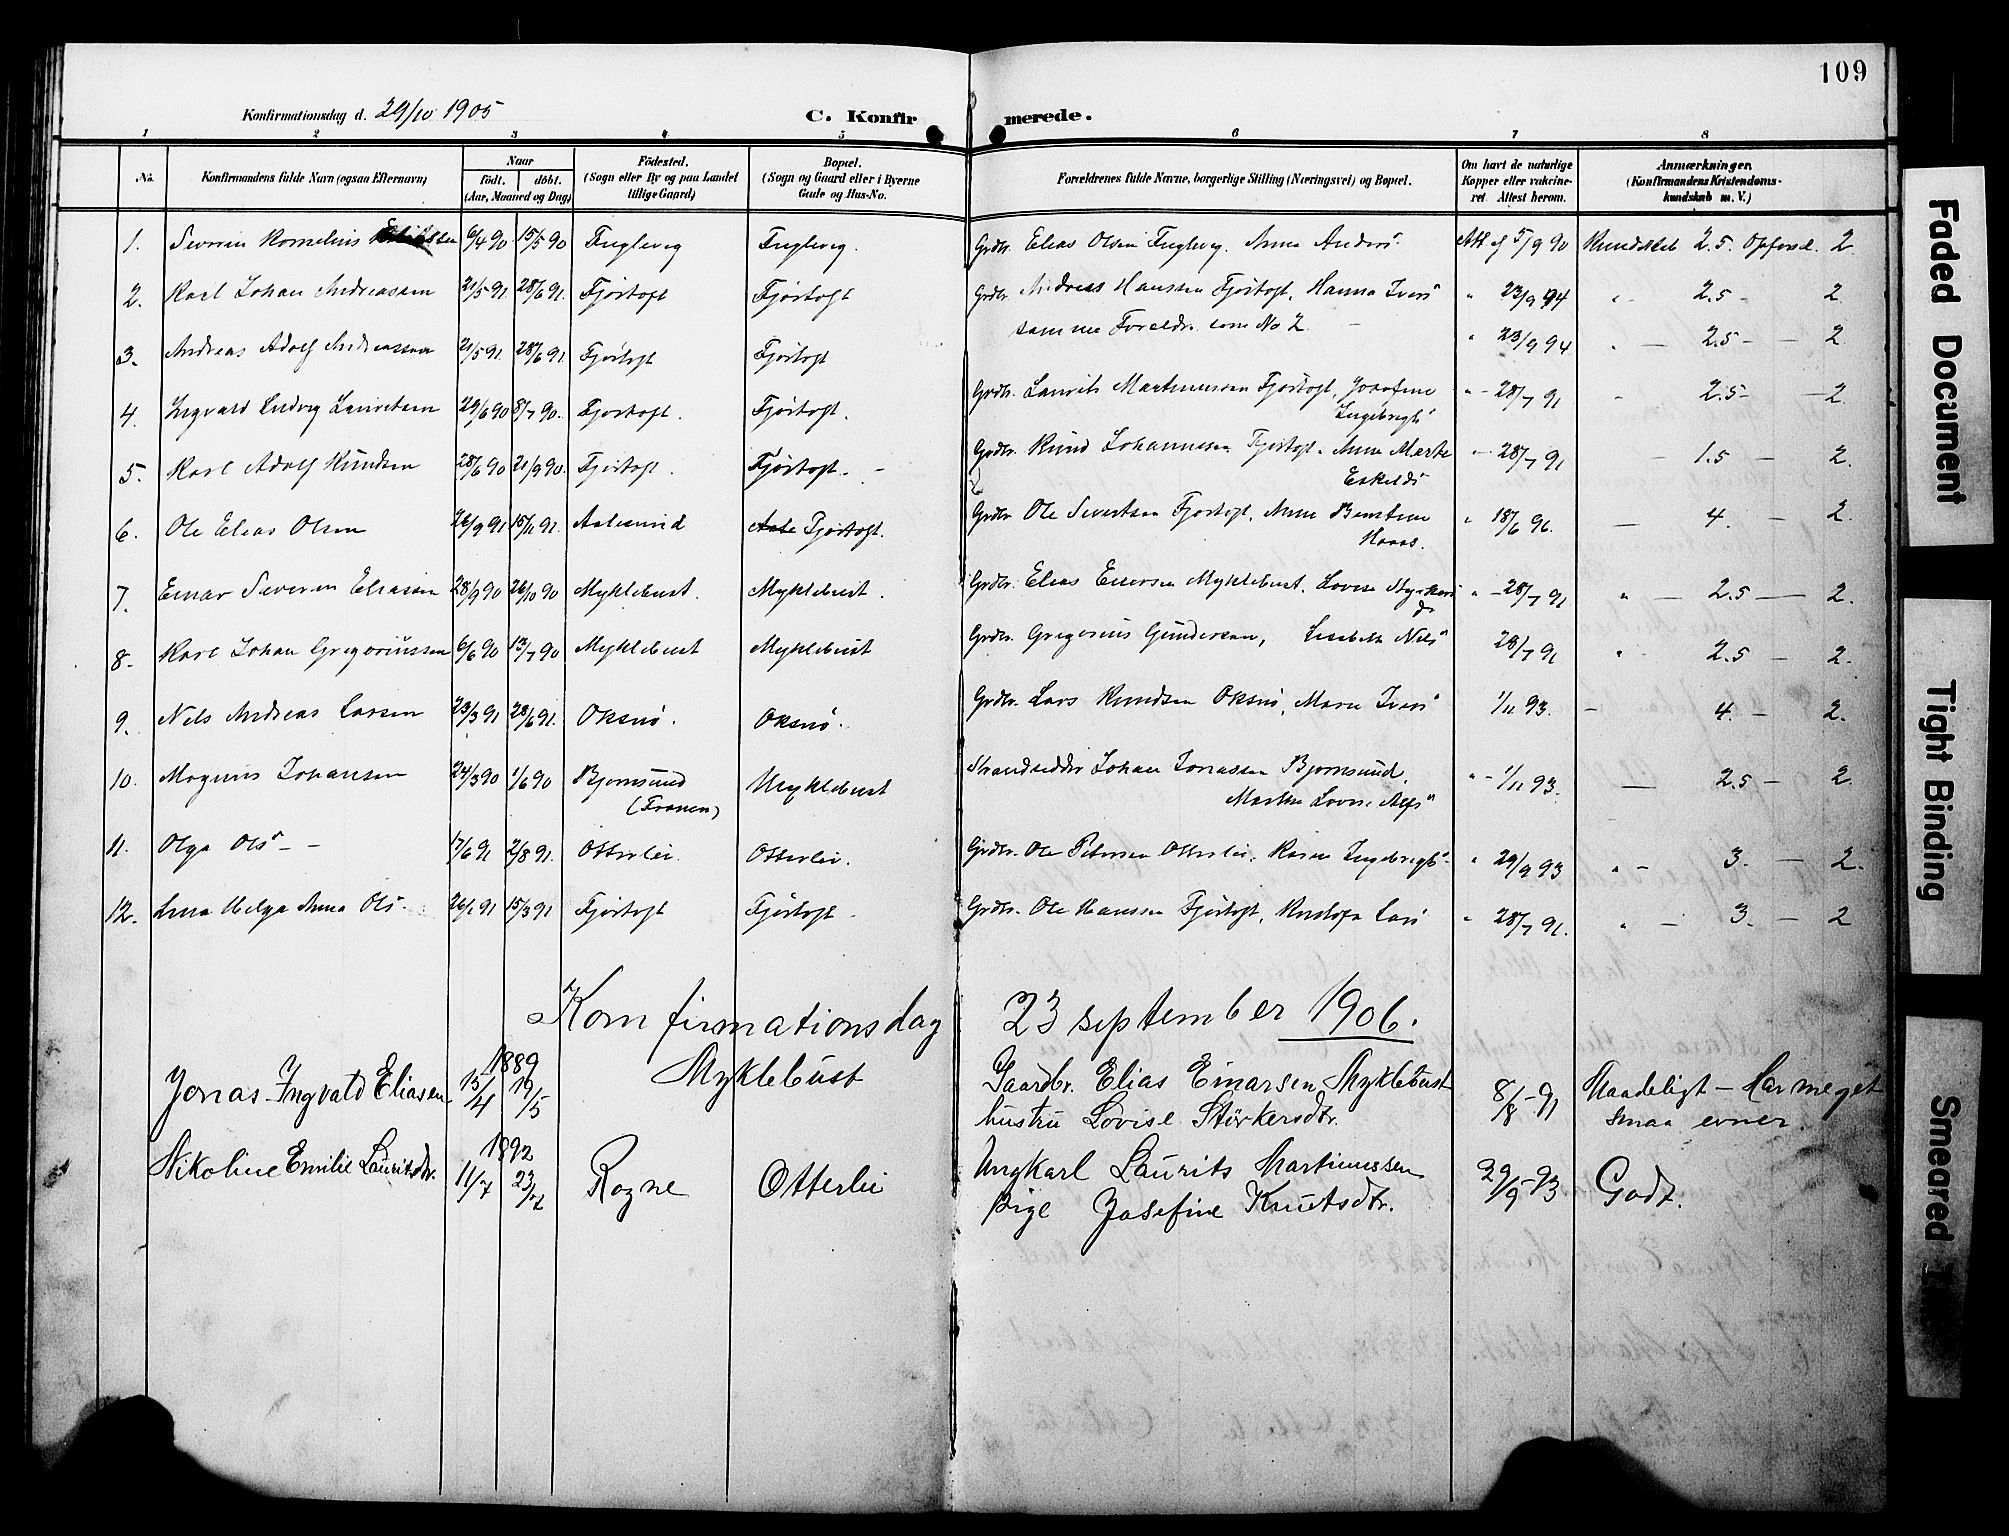 109
Konfirmationsdag d. 29/10 1905
C. Konfirmerede.
1 2 3 4 5 6 7 8
No. Konfirmandens fulde Navn (ogsaa Efternavn) Naar født. døbt. (Aar, Maaned og Dag) Födested. (Sogn eller By og paa Landet tillige Gaard) Bopæl. (Sogn og Gaard eller i Byerne Gade og Hus-No. Forældrenes fulde Navne, borgerlige Stilling (Næringsvei) og Bopæl. Om havt de naturlige Kopper eller vakcineret. Attest herom. Anmærkninger. (Konfirmandens Kristendomskundskab m. V.)
1. Severin Kornelius 6/4 90 15/5 90 Fuglevig Fuglevig. Grdbr. Elias Olsen Fuglevig. Anna Anders" Att af 5/9 90 Kundskab 2.5. Opførsel. 2
2. Karl Johan Andreassen 21/5 91 28/6 91. Fjørtoft Fjørtoft Grdbr. Andreas Hanssen Fjørtoft. Hanna Ivers" " 23/9 94 " 2.5 - 2.
3. Andreas Adolf Andreassen 21/5 91. 28/6 91. Fjørtoft Fjørtoft samme Foreldr. som No 2. - " 23/9 94 " - 2.5 - - 2
4. Ingvald Ludvig Lauritsen 29/6 90 8/7 90. Fjørtoft. Fjørtoft. Grdbr. Laurits Martinussen Fjørtoft, Josefine Ingebrigts" " - 28/7 91 " 2.5 - - 2.
5. Karl Adolf Knudsen 28/6 90 21/9 90. Fjørtoft. Fjørtoft. - Grdbr. Knud Johannessen Fjørtoft. Anne Marte Eskelds" " - 28/7 91 - 1.5 - 2.
6. Ole Elias Olsen 26/9 91 15/11 91. Aalesund Aale Fjørtoft. Grdbr. Ole Sivertsen Fjørtoft, Anne Haas. " 18/6 96. - 4. - 2.
7. Einar Severin Eliassen 28/9 90 26/10 90 Myklebust. Myklebust. Grdbr. Elias Einersen Myklebust. Lovise Styrkers dr " - 28/7 91 " - 2.5 - 2.
8. Karl Johan Gregoriussen 6/6 90 13/7 90 Myklebust Myklebust Grdbr. Gregorius Gundersen, Lisabeth Nils" 28/7 91 " 2.5 - 2.
9. Nils Andreas Larsen 23/3 91 28/6 91. Oksnø. Oksnø. Grdbr. Lars Knudsen Oksnø, Marie Ivers" 1/11 93. - 4. - 2.
10. Magnus Johansen 24/3 90 1/6 90 Bjørnsund (Frænen) Myklebust Strandsidder Johan Jonassen Bjørnsund. Marthe Lovise " - 1/11 93. - 2.5 - 2
11. Olga Ols" - - 17/6 91 2/8 91. Otterlei. Otterlei. Grdbr. Ole Petersen Otterlei, Ingebrigts" " 29/9 93 " - 3. - 2.
12. Lina Helga Anna Ols. 26/1 91 15/3 91 Fjørtoft Fjørtoft - Grdbr. Ole Hanssen Fjørtoft, Lars" " 28/7 91. " - 3. - 2
Komfirmationsdag 23 september 1906.
Jonas Ingvald Eliasen 1889 15/4 19/5 Myklebust Gaardbr. Elias Einarsen Myklebust hustru Lovise Størkersdtr. 8/8-91 Maadeligt - Har meget smaa evner.
Nikoline Emilie Lauritsdtr. 1892 11/7 23/7 Rogne Otterlei Ungkarl Laurits Martinussen pige Josefine Knutsdtr. 29/9-93 Godt.
Faded Document
Tight Binding
Smeared